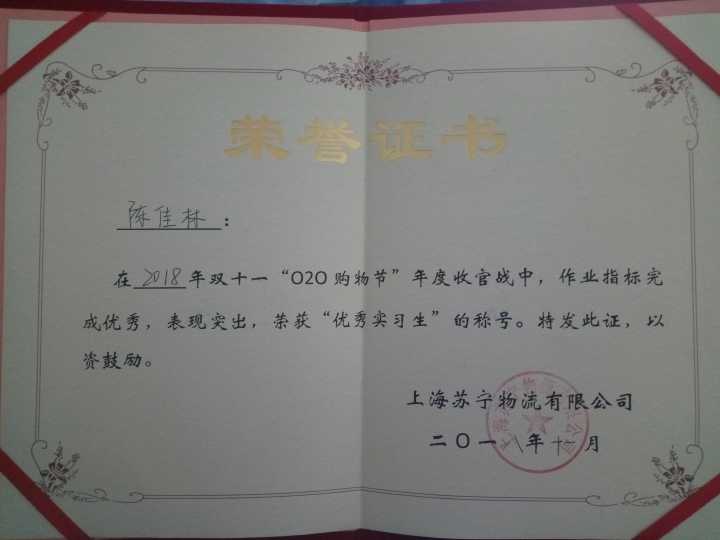 荣誉证书
陈佳林：
在2018年双十一“O2O购物节”年度收官战中，作业指标完
成优秀，表现突出，荣获“优秀实习生”的称号。特发此证，以
资鼓励。
上海苏宁物流有限公司
二〇一八年十一月